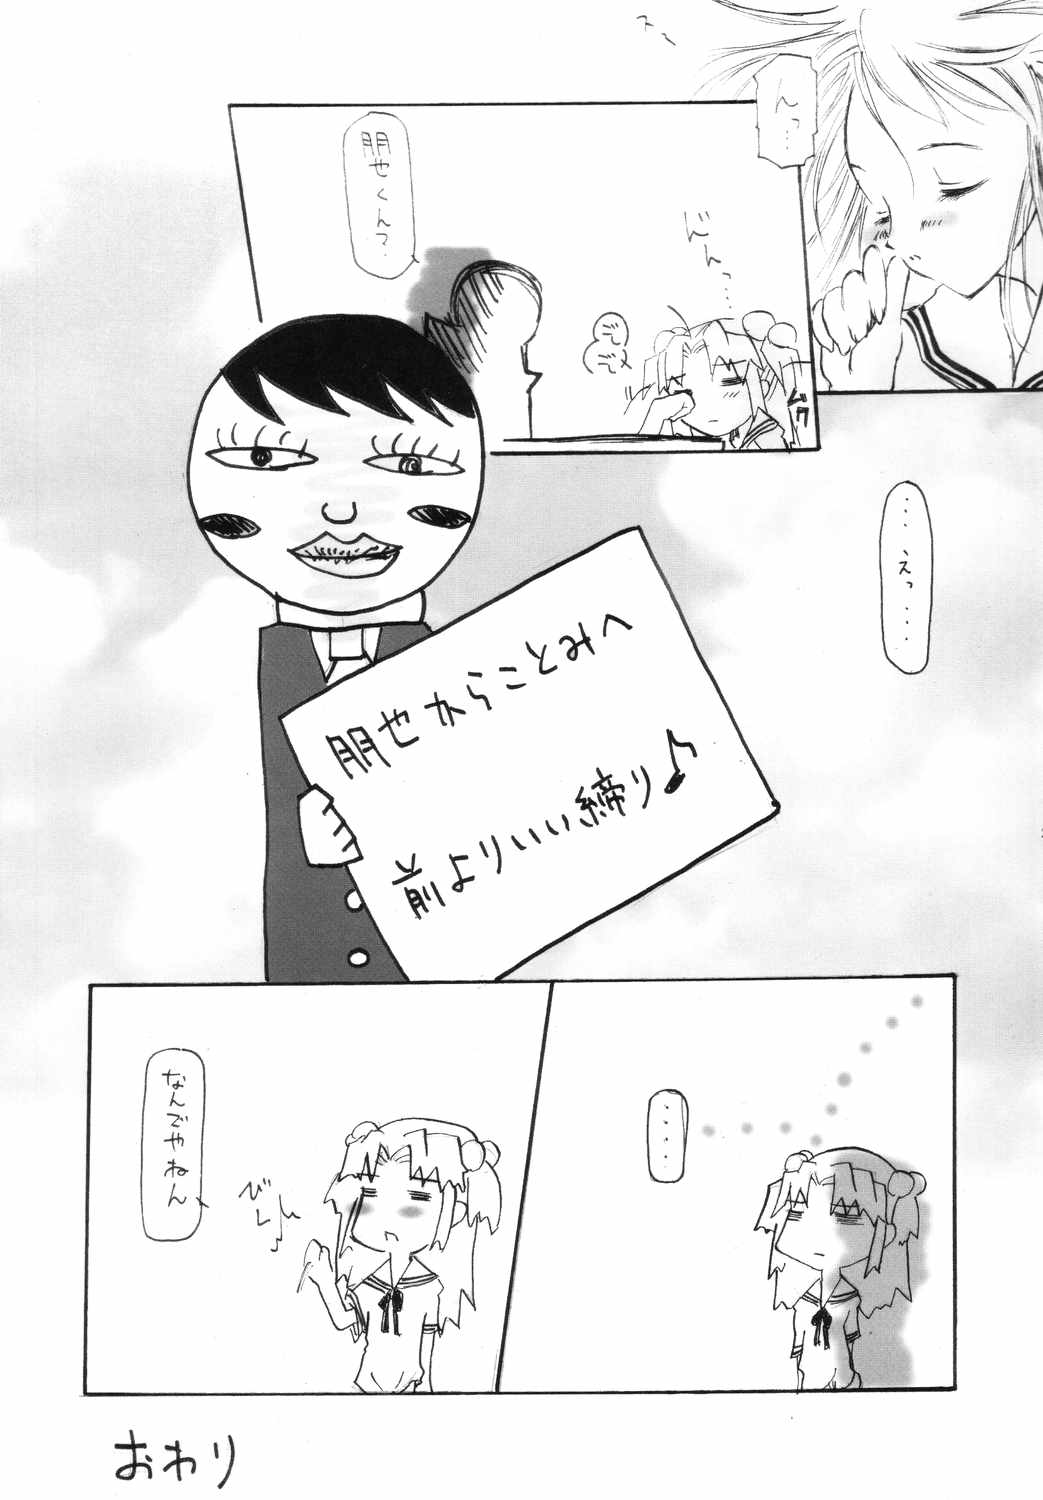 スー
んっ…
じんっ……
ぐしぐし
ムク
朋也くん?
……えっ……
朋也からことみへ
前よりいい締り♪
……
なんでやねん
びしぃ
おわり